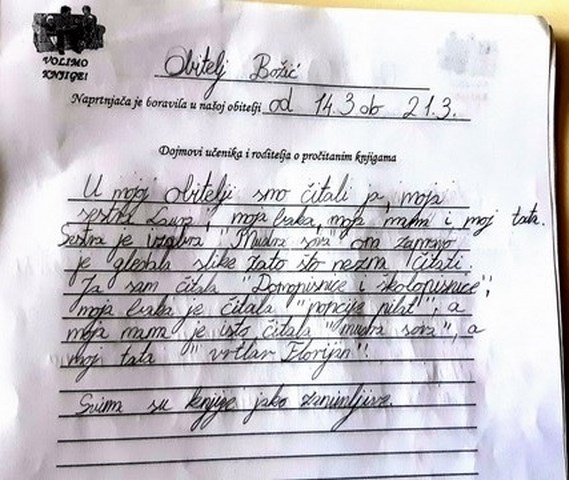 VOLIMO
KNJIGE!
Obitelj Božić
Naprtnjača je boravila u našoj obitelji od 14.3 do 21.3.
Dojmovi učenika i roditelja o pročitanim knjigama
U mojoj obitelji smo čitali ja, moja
sestra Laura, moja baka, moja mama i moj tata.
Sestra je izabra "Mudra sova" ona zapravo
je gledala slike zato što nezna čitati.
Ja sam čitala "Domopisnice i školopisnice",
moja baka je čitala "poncije pilat", a
moja mama je isto čitala "mudra sova", a
moj tata "vrtlar Florijan".
Svima su knjige jako zanimljive.